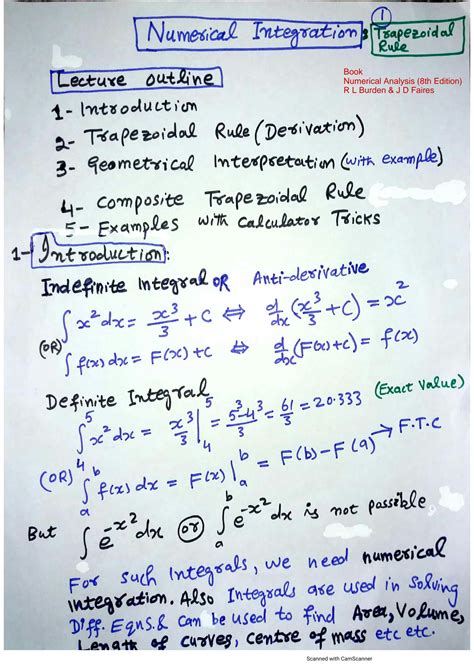 ①
Numerical Integration : Trapezoidal Rule
Book
Numerical Analysis (8th Edition)
R L Burden & J D Faires
Lecture outline
1- Introduction
2- Trapezoidal Rule (Derivation)
3- Geometrical Interpretation (with example)
4- Composite Trapezoidal Rule
5- Examples with Calculator Tricks
1- Introduction:
Indefinite Integral OR Anti-derivative
∫x²dx = x³/3 + C ⇔ d/dx(x³/3 + C) = x²
(OR) ∫f(x)dx = F(x)+C ⇔ d/dx(F(x)+C) = f(x)
Definite Integral
∫₄⁵ x²dx = x³/3 |₄⁵ = (5³-4³)/3 = 61/3 = 20.333 (Exact Value)
(OR) ∫ₐᵇ f(x)dx = F(x)|ₐᵇ = F(b)-F(a) → F.T.C
But ∫e^(-x²)dx (or) ∫ₐᵇ e^(-x²)dx is not possible
For such Integrals, we need numerical
integration. Also Integrals are used in Solving
Diff. Eqns. & can be used to find Area, Volume,
Length of curves, centre of mass etc etc.
Scanned with CamScanner